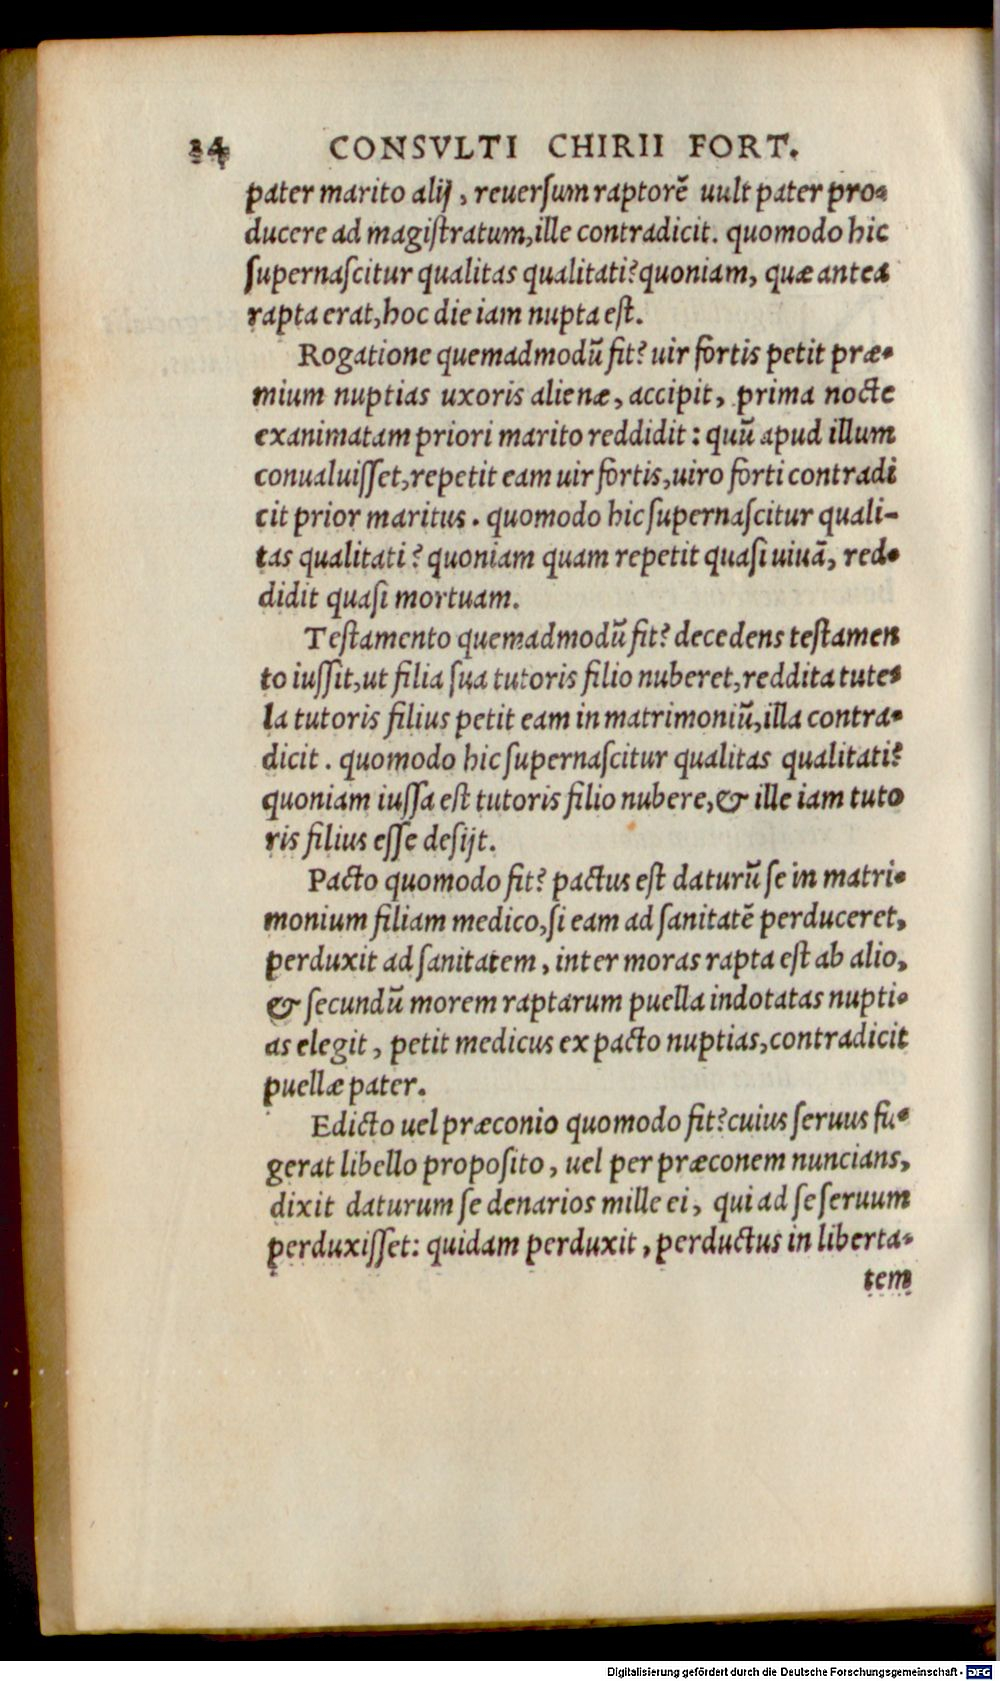 34 CONSVLTI CHIRII FORT.
pater marito alij, reuerſum raptorē uult pater pro-
ducere ad magiſtratum, ille contradicit. quomodo hic
ſupernaſcitur qualitas qualitati? quoniam, quæ antea
rapta erat, hoc die iam nupta eſt.
Rogatione quemadmodū fit? uir fortis petit præ-
mium nuptias uxoris alienæ, accipit, prima nocte
exanimatam priori marito reddidit: quū apud illum
conualuiſſet, repetit eam uir fortis, uiro forti contradi
cit prior maritus. quomodo hic ſupernaſcitur quali-
tas qualitati? quoniam quam repetit quaſi uiuā, red-
didit quaſi mortuam.
Teſtamento quemadmodū fit? decedens teſtamen
to iuſſit, ut filia ſua tutoris filio nuberet, reddita tute-
la tutoris filius petit eam in matrimoniū, illa contra-
dicit. quomodo hic ſupernaſcitur qualitas qualitati?
quoniam iuſſa eſt tutoris filio nubere, & ille iam tuto
ris filius eſſe deſijt.
Pacto quomodo fit? pactus eſt daturū ſe in matri-
monium filiam medico, ſi eam ad ſanitatē perduceret,
perduxit ad ſanitatem, inter moras rapta eſt ab alio,
& ſecundū morem raptarum puella indotatas nupti-
as elegit, petit medicus ex pacto nuptias, contradicit
puellæ pater.
Edicto uel præconio quomodo fit? cuius ſeruus fu-
gerat libello propoſito, uel per præconem nuncians,
dixit daturum ſe denarios mille ei, qui ad ſe ſeruum
perduxiſſet: quidam perduxit, perductus in liberta-
tem
Digitalisierung gefördert durch die Deutsche Forschungsgemeinschaft - DFG